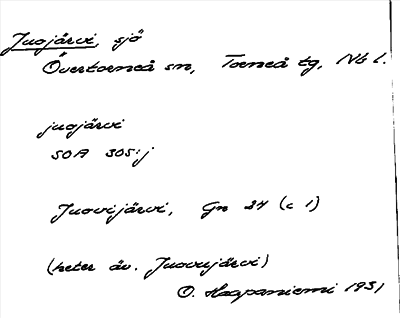 Juojärvi, sjö
Övertorneå sn, Torneå tg, Nb l.
juojärvi
SOA 305:j
Juovijärvi, Gn 24 (c 1)
(heter äv. Juovujärvi)
O. Haapaniemi 1931